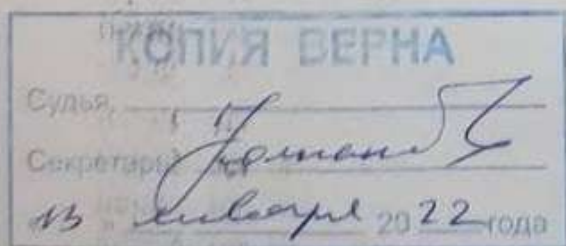 КОПИЯ ВЕРНА
Судья
Секретарь
13 января 2022 года